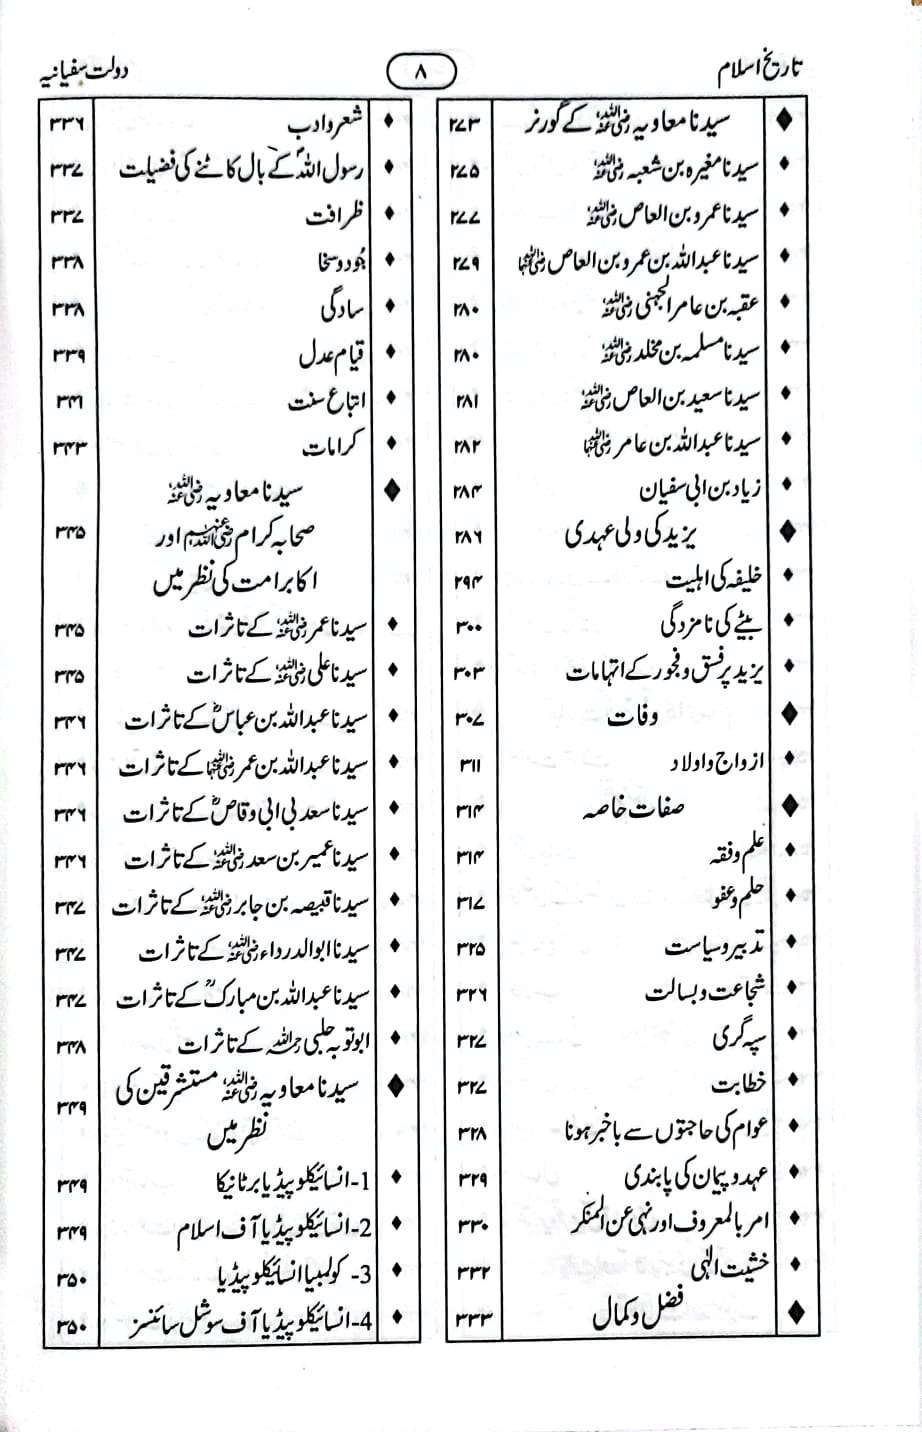 تاریخ اسلام ۸ دولت سفیانیہ
سیدنا معاویہ رضی اللہ عنہ کے گورنر ۲۷۳
سیدنا مغیرہ بن شعبہ رضی اللہ عنہ ۲۷۵
سیدنا عمرو بن العاص رضی اللہ عنہ ۲۷۷
سیدنا عبداللہ بن عمرو بن العاص رضی اللہ عنہما ۲۷۹
عقبہ بن عامر الجہنی رضی اللہ عنہ ۲۸۰
سیدنا مسلمہ بن مخلد رضی اللہ عنہ ۲۸۰
سیدنا سعید بن العاص رضی اللہ عنہ ۲۸۱
سیدنا عبداللہ بن عامر رضی اللہ عنہما ۲۸۲
زیاد بن ابی سفیان ۲۸۴
یزید کی ولی عہدی ۲۸۶
خلیفہ کی اہلیت ۲۹۴
بیٹے کی نامزدگی ۳۰۰
یزید پر فسق و فجور کے اتہامات ۳۰۳
وفات ۳۰۷
ازواج و اولاد ۳۱۱
صفات خاصہ ۳۱۴
علم و فقہ ۳۱۴
حلم و عفو ۳۱۷
تدبیر و سیاست ۳۲۵
شجاعت و بسالت ۳۲۶
سپہ گری ۳۲۷
خطابت ۳۲۷
عوام کی حاجتوں سے باخبر ہونا ۳۲۸
عہد و پیمان کی پابندی ۳۲۹
امر بالمعروف اور نہی عن المنکر ۳۳۰
خشیت الٰہی ۳۳۲
فضل و کمال ۳۳۳
شعر و ادب ۳۳۶
رسول اللہؐ کے بال کاٹنے کی فضیلت ۳۳۷
ظرافت ۳۳۷
جُود و سخا ۳۳۸
سادگی ۳۳۸
قیام عدل ۳۳۹
اتباع سنت ۳۴۱
کرامات ۳۴۳
سیدنا معاویہ رضی اللہ عنہ
صحابہ کرام رضی اللہ عنہم اور ۳۴۵
اکابر امت کی نظر میں
سیدنا عمر رضی اللہ عنہ کے تاثرات ۳۴۵
سیدنا علی رضی اللہ عنہ کے تاثرات ۳۴۵
سیدنا عبداللہ بن عباسؓ کے تاثرات ۳۴۶
سیدنا عبداللہ بن عمر رضی اللہ عنہما کے تاثرات ۳۴۶
سیدنا سعد بی ابی وقاصؓ کے تاثرات ۳۴۶
سیدنا عمیر بن سعد رضی اللہ عنہ کے تاثرات ۳۴۶
سیدنا قبیصہ بن جابر رضی اللہ عنہ کے تاثرات ۳۴۷
سیدنا ابوالدرداء رضی اللہ عنہ کے تاثرات ۳۴۷
سیدنا عبداللہ بن مبارکؒ کے تاثرات ۳۴۷
ابوتوبہ حلبی رحمہ اللہ کے تاثرات ۳۴۸
سیدنا معاویہ رضی اللہ عنہ مستشرقین کی ۳۴۹
نظر میں
1-انسائیکلوپیڈیا برٹانیکا ۳۴۹
2-انسائیکلوپیڈیا آف اسلام ۳۴۹
3- کولمبیا انسائیکلوپیڈیا ۳۵۰
4-انسائیکلوپیڈیا آف سوشل سائنسز ۳۵۰